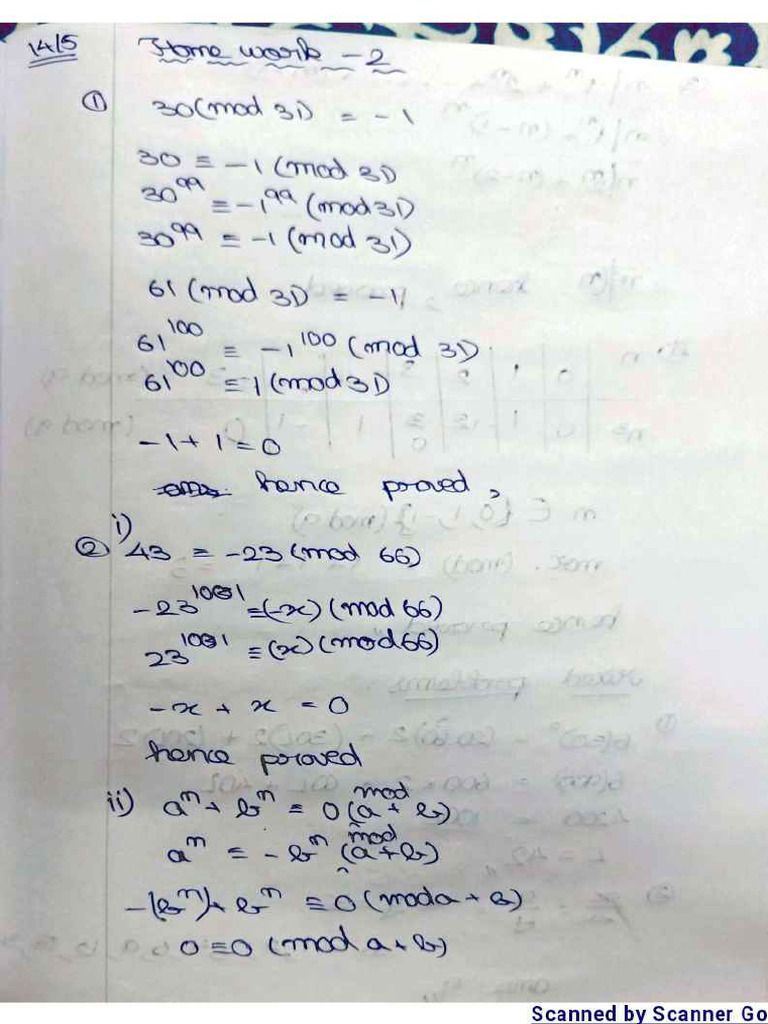 14/5 Home work - 2
① 30 (mod 31) = -1
30 ≡ -1 (mod 31)
30^99 ≡ -1^99 (mod 31)
30^99 ≡ -1 (mod 31)
61 (mod 31) = -1
61^100 ≡ -1^100 (mod 31)
61^100 ≡ 1 (mod 31)
-1 + 1 = 0
hence proved,
② i) 43 ≡ -23 (mod 66)
-23^101 ≡ (-x) (mod 66)
23^101 ≡ (x) (mod 66)
-x + x = 0
hence proved
ii) a^n + b^n ≡ 0 (mod a + b)
a^n ≡ -b^n (mod a + b)
-(b^n) + b^n ≡ 0 (mod a + b)
0 ≡ 0 (mod a + b)
Scanned by Scanner Go